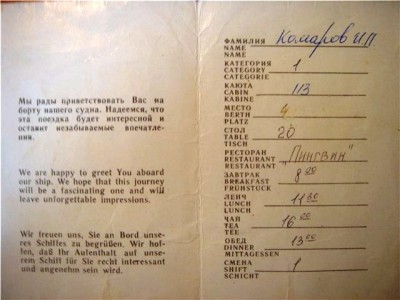 Мы рады приветствовать Вас на
борту нашего судна. Надеемся, что
эта поездка будет интересной и
оставит незабываемые впечатле-
ния.
We are happy to greet You aboard
our ship. We hope that this journey
will be a fascinating one and will
leave unforgettable impressions.
Wir freuen uns, Sie an Bord unse-
res Schiffes zu begrüßen. Wir hof-
fen, daß Ihr Aufenthalt auf unse-
rem Schiff für Sie recht interessant
und angenehm sein wird.
ФАМИЛИЯ
NAME Комаров
NAME
КАТЕГОРИЯ
CATEGORY 1
CATEGORIE
КАЮТА
CABIN 113
KABINE
МЕСТО
BERTH 4
PLATZ
СТОЛ
TABLE 20
TISCH
РЕСТОРАН
RESTAURANT "Пингвин"
RESTAURANT
ЗАВТРАК
BREAKFAST 8 00
FRÜHSTÜCK
ЛЕНЧ
LUNCH 11 30
LUNCH
ЧАЙ
TEA 16 00
TEE
ОБЕД
DINNER
MITTAGESSEN
СМЕНА
SHIFT 1
SCHICHT